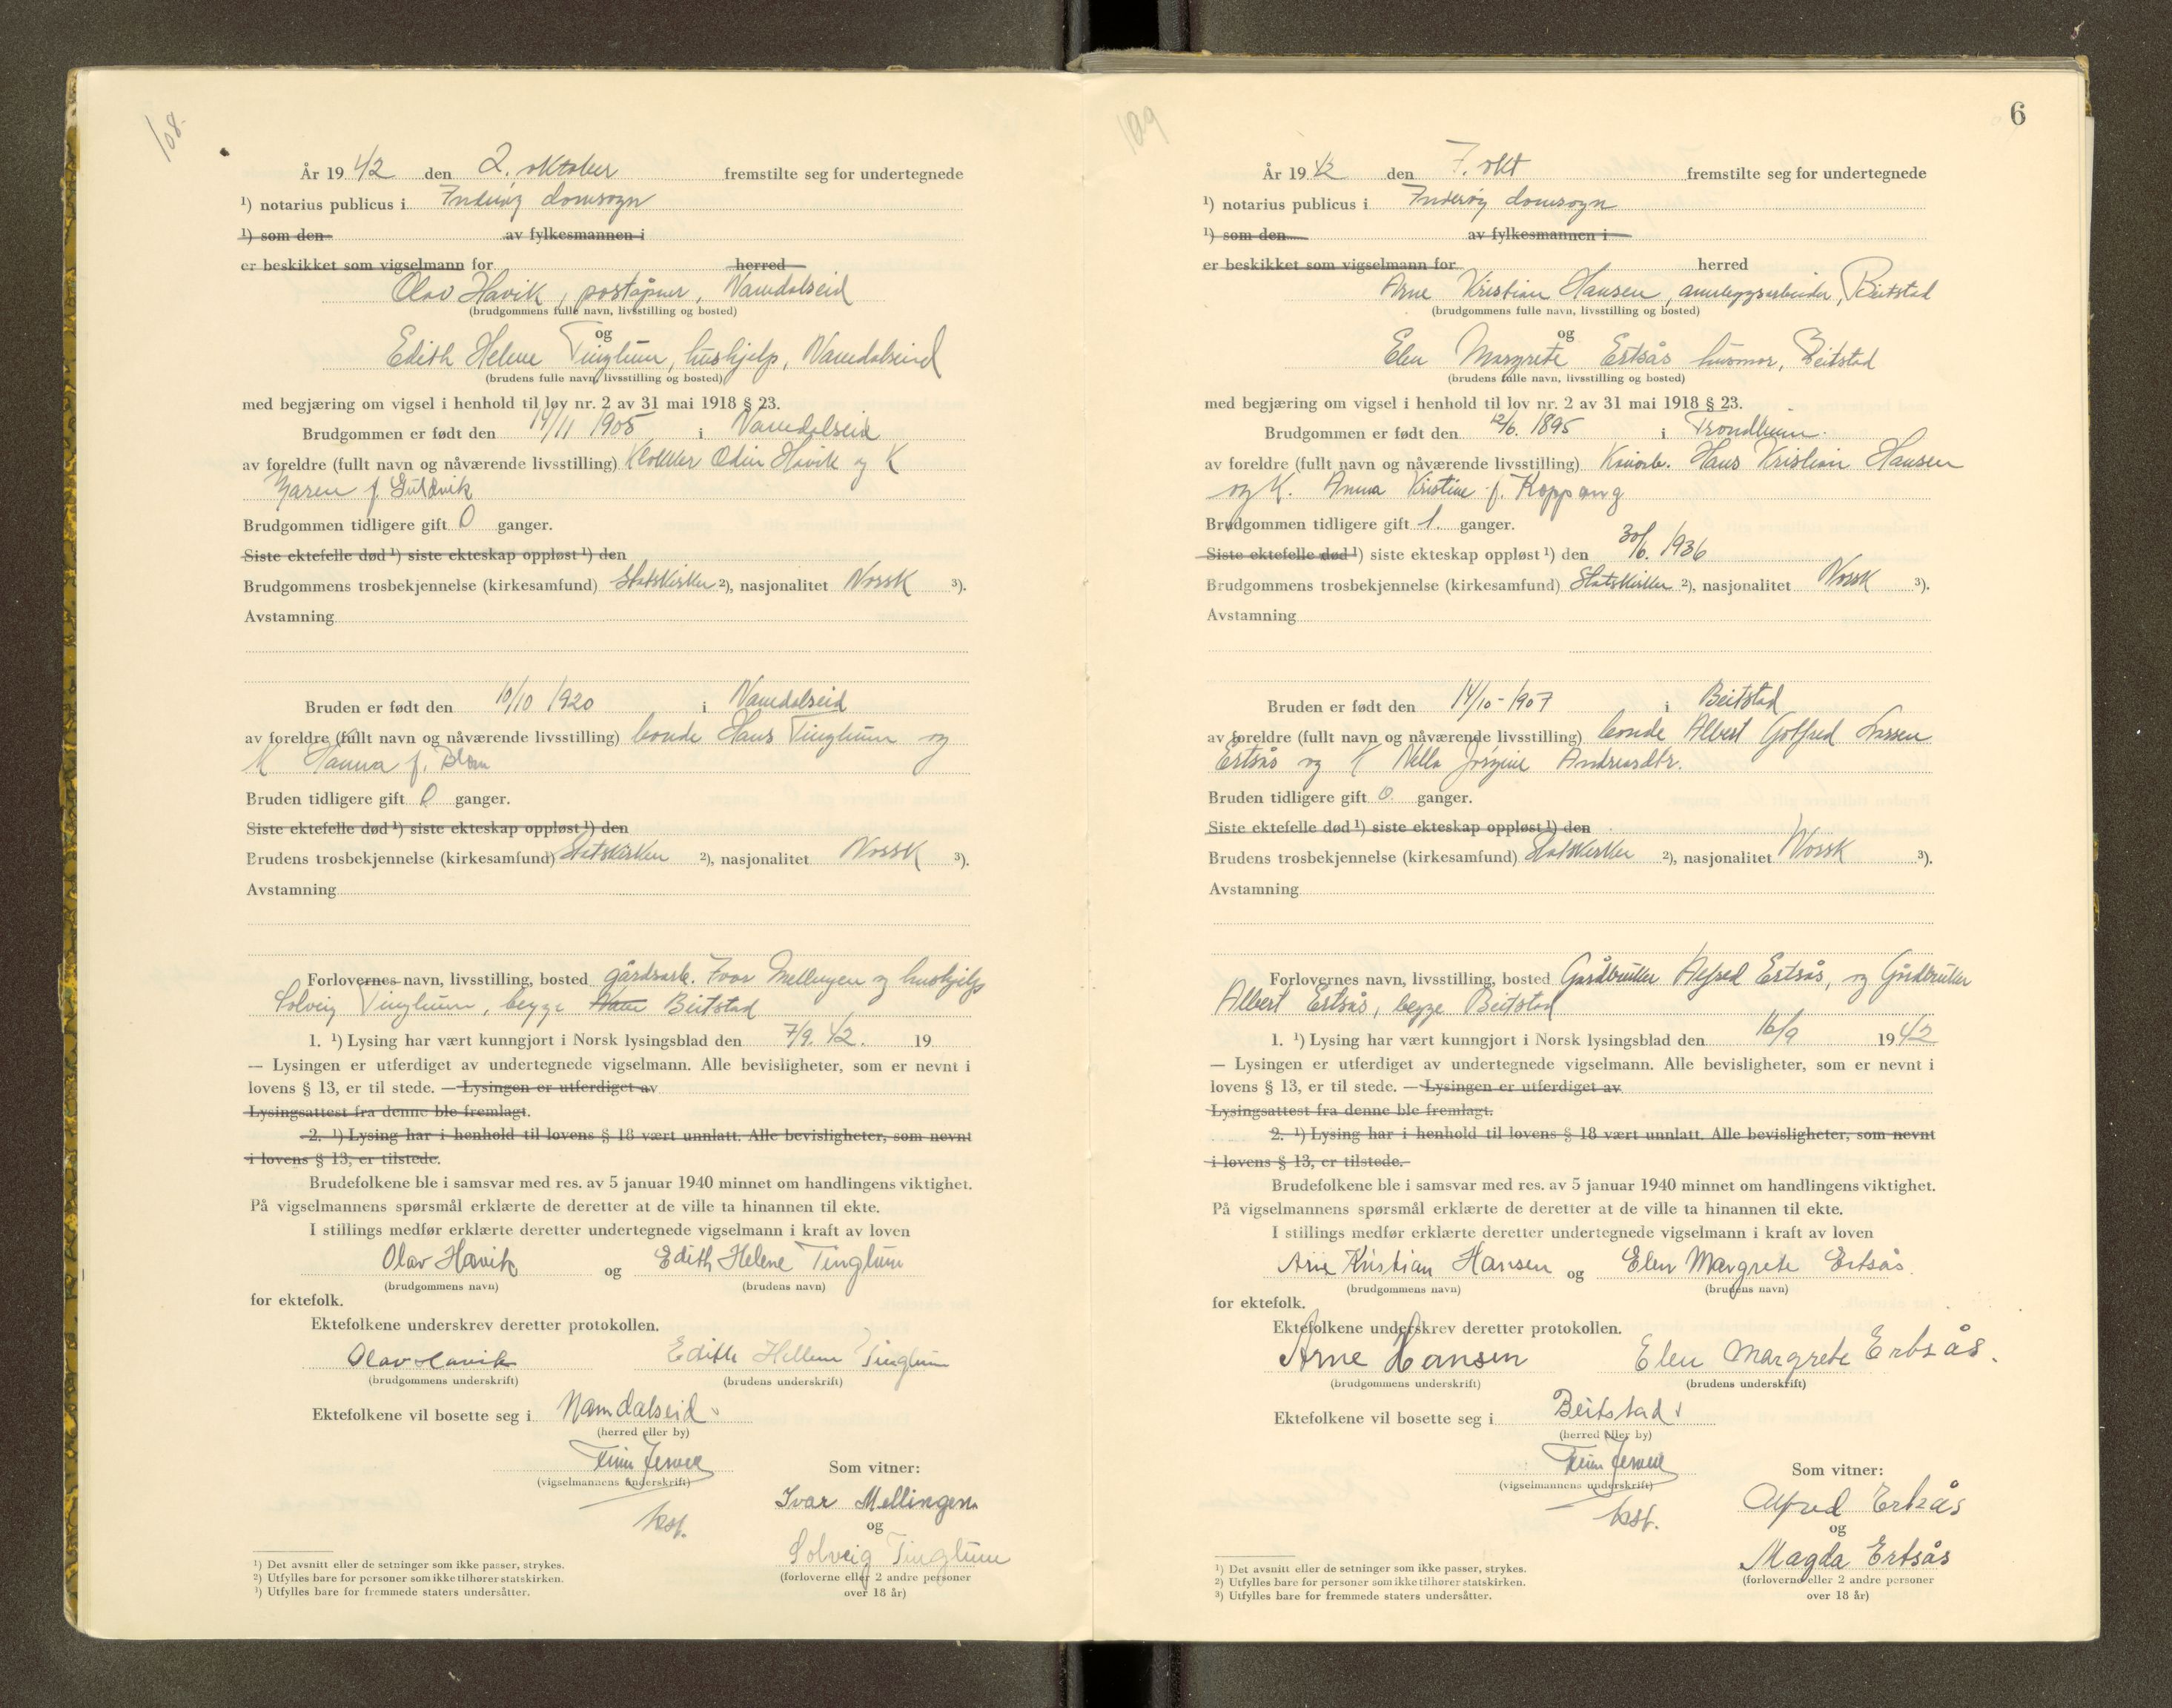 108.
År 19 42 den 2. oktober fremstilte seg for undertegnede
¹) notarius publicus i Inderøy domsogn
¹) som den av fylkesmannen i
er beskikket som vigselmann for herred
Olav Havik, poståpner, Namdalseid
(brudgommens fulle navn, livsstilling og bosted)
og
Edith Helene Tinglum, hushjelp, Namdalseid
(brudens fulle navn, livsstilling og bosted)
med begjæring om vigsel i henhold til lov nr. 2 av 31 mai 1918 § 23.
Brudgommen er født den 14/11 1905 i Namdalseid
av foreldre (fullt navn og nåværende livsstilling) Klokker Odin Havik og K
Maren f.
Brudgommen tidligere gift 0 ganger.
Siste ektefelle død ¹) siste ekteskap oppløst ¹) den
Brudgommens trosbekjennelse (kirkesamfund) Statskirken ²), nasjonalitet Norsk ³).
Avstamning
Bruden er født den 10/10 1920 i Namdalseid
av foreldre (fullt navn og nåværende livsstilling) bonde Hans Tinglum og
K Hanna f.
Bruden tidligere gift 0 ganger.
Siste ektefelle død ¹) siste ekteskap oppløst ¹) den
Brudens trosbekjennelse (kirkesamfund) Statskirken ²), nasjonalitet Norsk ³).
Avstamning
Forlovernes navn, livsstilling, bosted gårdsarb. Ivar Mellingen og hushjelp
Solveig Tinglum, begge Beitstad
1. ¹) Lysing har vært kunngjort i Norsk lysingsblad den 7/9. 42. 19
— Lysingen er utferdiget av undertegnede vigselmann. Alle bevisligheter, som er nevnt i
lovens § 13, er til stede. — Lysingen er utferdiget av
Lysingsattest fra denne ble fremlagt.
2. ¹) Lysing har i henhold til lovens § 18 vært unnlatt. Alle bevisligheter, som nevnt
i lovens § 13, er tilstede.
Brudefolkene ble i samsvar med res. av 5 januar 1940 minnet om handlingens viktighet.
På vigselmannens spørsmål erklærte de deretter at de ville ta hinannen til ekte.
I stillings medfør erklærte deretter undertegnede vigselmann i kraft av loven
Olav Havik og Edith Helene Tinglum
(brudgommens navn) (brudens navn)
for ektefolk.
Ektefolkene underskrev deretter protokollen.
Olav Havik Edith Hellene Tinglum
(brudgommens underskrift) (brudens underskrift)
Ektefolkene vil bosette seg i Namdalseid
(herred eller by)
(vigselmannens underskrift)
Som vitner:
Ivar Mellingen
kst.
og
Solveig Tinglum
(forloverne eller 2 andre personer
over 18 år)
¹) Det avsnitt eller de setninger som ikke passer, strykes.
²) Utfylles bare for personer som ikke tilhører statskirken.
³) Utfylles bare for fremmede staters undersåtter.
109
6
År 19 42 den 7. okt fremstilte seg for undertegnede
¹) notarius publicus i Inderøy domsogn
¹) som den av fylkesmannen i
er beskikket som vigselmann for herred
Arne Kristian Hansen, anleggsarbeider, Beitstad
(brudgommens fulle navn, livsstilling og bosted)
og
Elen Margrete Ertsås husmor, Beitstad
(brudens fulle navn, livsstilling og bosted)
med begjæring om vigsel i henhold til lov nr. 2 av 31 mai 1918 § 23.
Brudgommen er født den 12/6. 1895 i Trondheim.
av foreldre (fullt navn og nåværende livsstilling) Hans Kristian Hansen
og K. Anna Kristine f. Koppang
Brudgommen tidligere gift 1. ganger.
Siste ektefelle død ¹) siste ekteskap oppløst ¹) den 30/6. 1936
Brudgommens trosbekjennelse (kirkesamfund) Statskirken ²), nasjonalitet Norsk ³).
Avstamning
Bruden er født den 14/10-1907 i Beitstad
av foreldre (fullt navn og nåværende livsstilling) bonde Albert Gotfred Larsen
Ertsås og K Nella Jørgine Andreasdtr.
Bruden tidligere gift 0. ganger.
Siste ektefelle død ¹) siste ekteskap oppløst ¹) den
Brudens trosbekjennelse (kirkesamfund) Statskirken ²), nasjonalitet Norsk ³).
Avstamning
Forlovernes navn, livsstilling, bosted Gårdbruker Alfred Ertsås, og Gårdbruker
Albert Ertsås, begge Beitstad
1. ¹) Lysing har vært kunngjort i Norsk lysingsblad den 16/9 19 42
— Lysingen er utferdiget av undertegnede vigselmann. Alle bevisligheter, som er nevnt i
lovens § 13, er til stede. — Lysingen er utferdiget av
Lysingsattest fra denne ble fremlagt.
2. ¹) Lysing har i henhold til lovens § 18 vært unnlatt. Alle bevisligheter, som nevnt
i lovens § 13, er tilstede.
Brudefolkene ble i samsvar med res. av 5 januar 1940 minnet om handlingens viktighet.
På vigselmannens spørsmål erklærte de deretter at de ville ta hinannen til ekte.
I stillings medfør erklærte deretter undertegnede vigselmann i kraft av loven
Arne Kristian Hansen og Elen Margrete Ertsås.
(brudgommens navn) (brudens navn)
for ektefolk.
Ektefolkene underskrev deretter protokollen.
Arne Hansen Elen Margrete Ertsås.
(brudgommens underskrift) (brudens underskrift)
Ektefolkene vil bosette seg i Beitstad
(herred eller by)
(vigselmannens underskrift)
Som vitner:
Alfred Ertsås
kst.
og
Magda Ertsås
(forloverne eller 2 andre personer
over 18 år)
¹) Det avsnitt eller de setninger som ikke passer, strykes.
²) Utfylles bare for personer som ikke tilhører statskirken.
³) Utfylles bare for fremmede staters undersåtter.